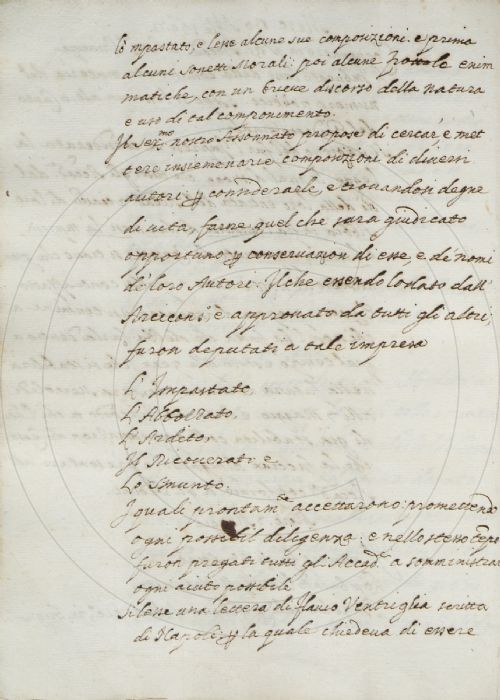 lo mpastato, e lesse alcune sue composizioni: e prima
alcuni sonetti Morali: poi alcune Frottole enim
matiche, con un brieue discorso della natura
e uso di tal componimento.
Il Ser.mo nostro Assonnato propose di cercar, e met
tere insieme varie composizioni di diuersi
autori: p considerarle, e trouandosi degne
di uita, farne quel che sarà giudicato
opportuno p conseruazion di esse, e de' nomi
de' loro Autori. Il che essendo lodato dall'
Arcicons.o e approuato da tutti gli altri,
furon deputati a tale impresa
L' Impastato,
L'Ardito,
Il Ricouerato e
Lo Smunto.
I quali prontam.te accettarono: promettendo
ogni possibil diligenza: e nello stesso tẽpo
furon pregati tutti gli Accad.i a somministrar
ogni aiuto possibile
Si lesse una lettera di Flauio Ventriglia scritta
di Napoli: p la quale chiedeua di essere